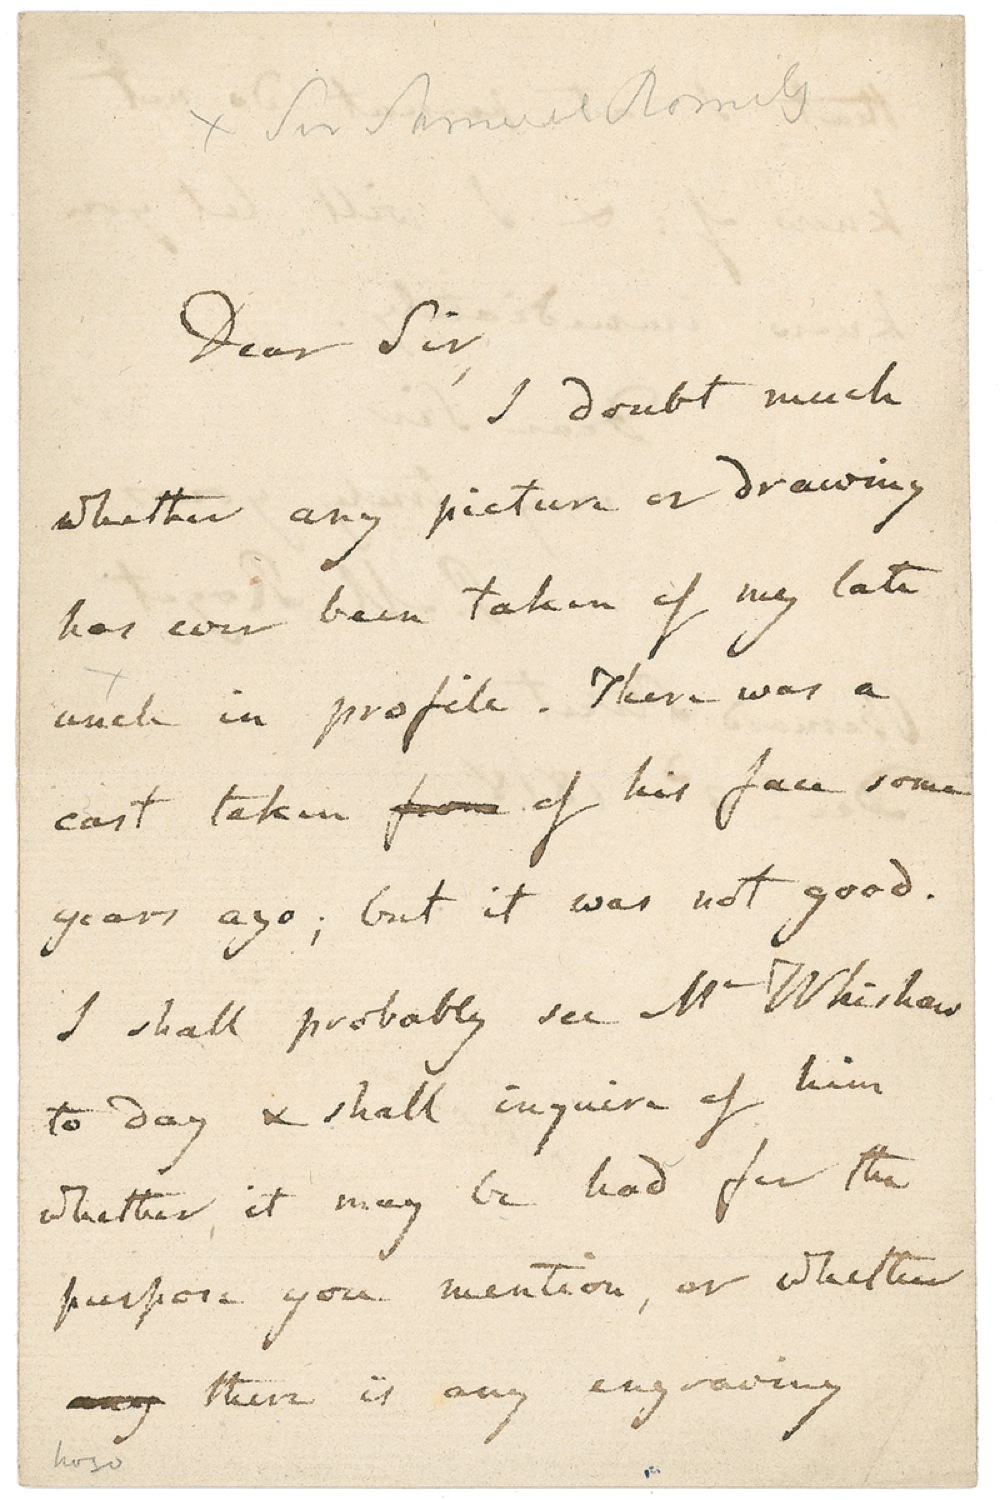 x Sir Samuel Romilly
Dear Sir,
I doubt much
whether any picture or drawing
has ever been taken of my late
x
uncle in profile. There was a
cast taken from of his face some
years ago; but it was not good.
I shall probably see Mr Whishaw
to day & shall inquire of him
whether it may be had for the
purpose you mention, or whether
any there is any engraving